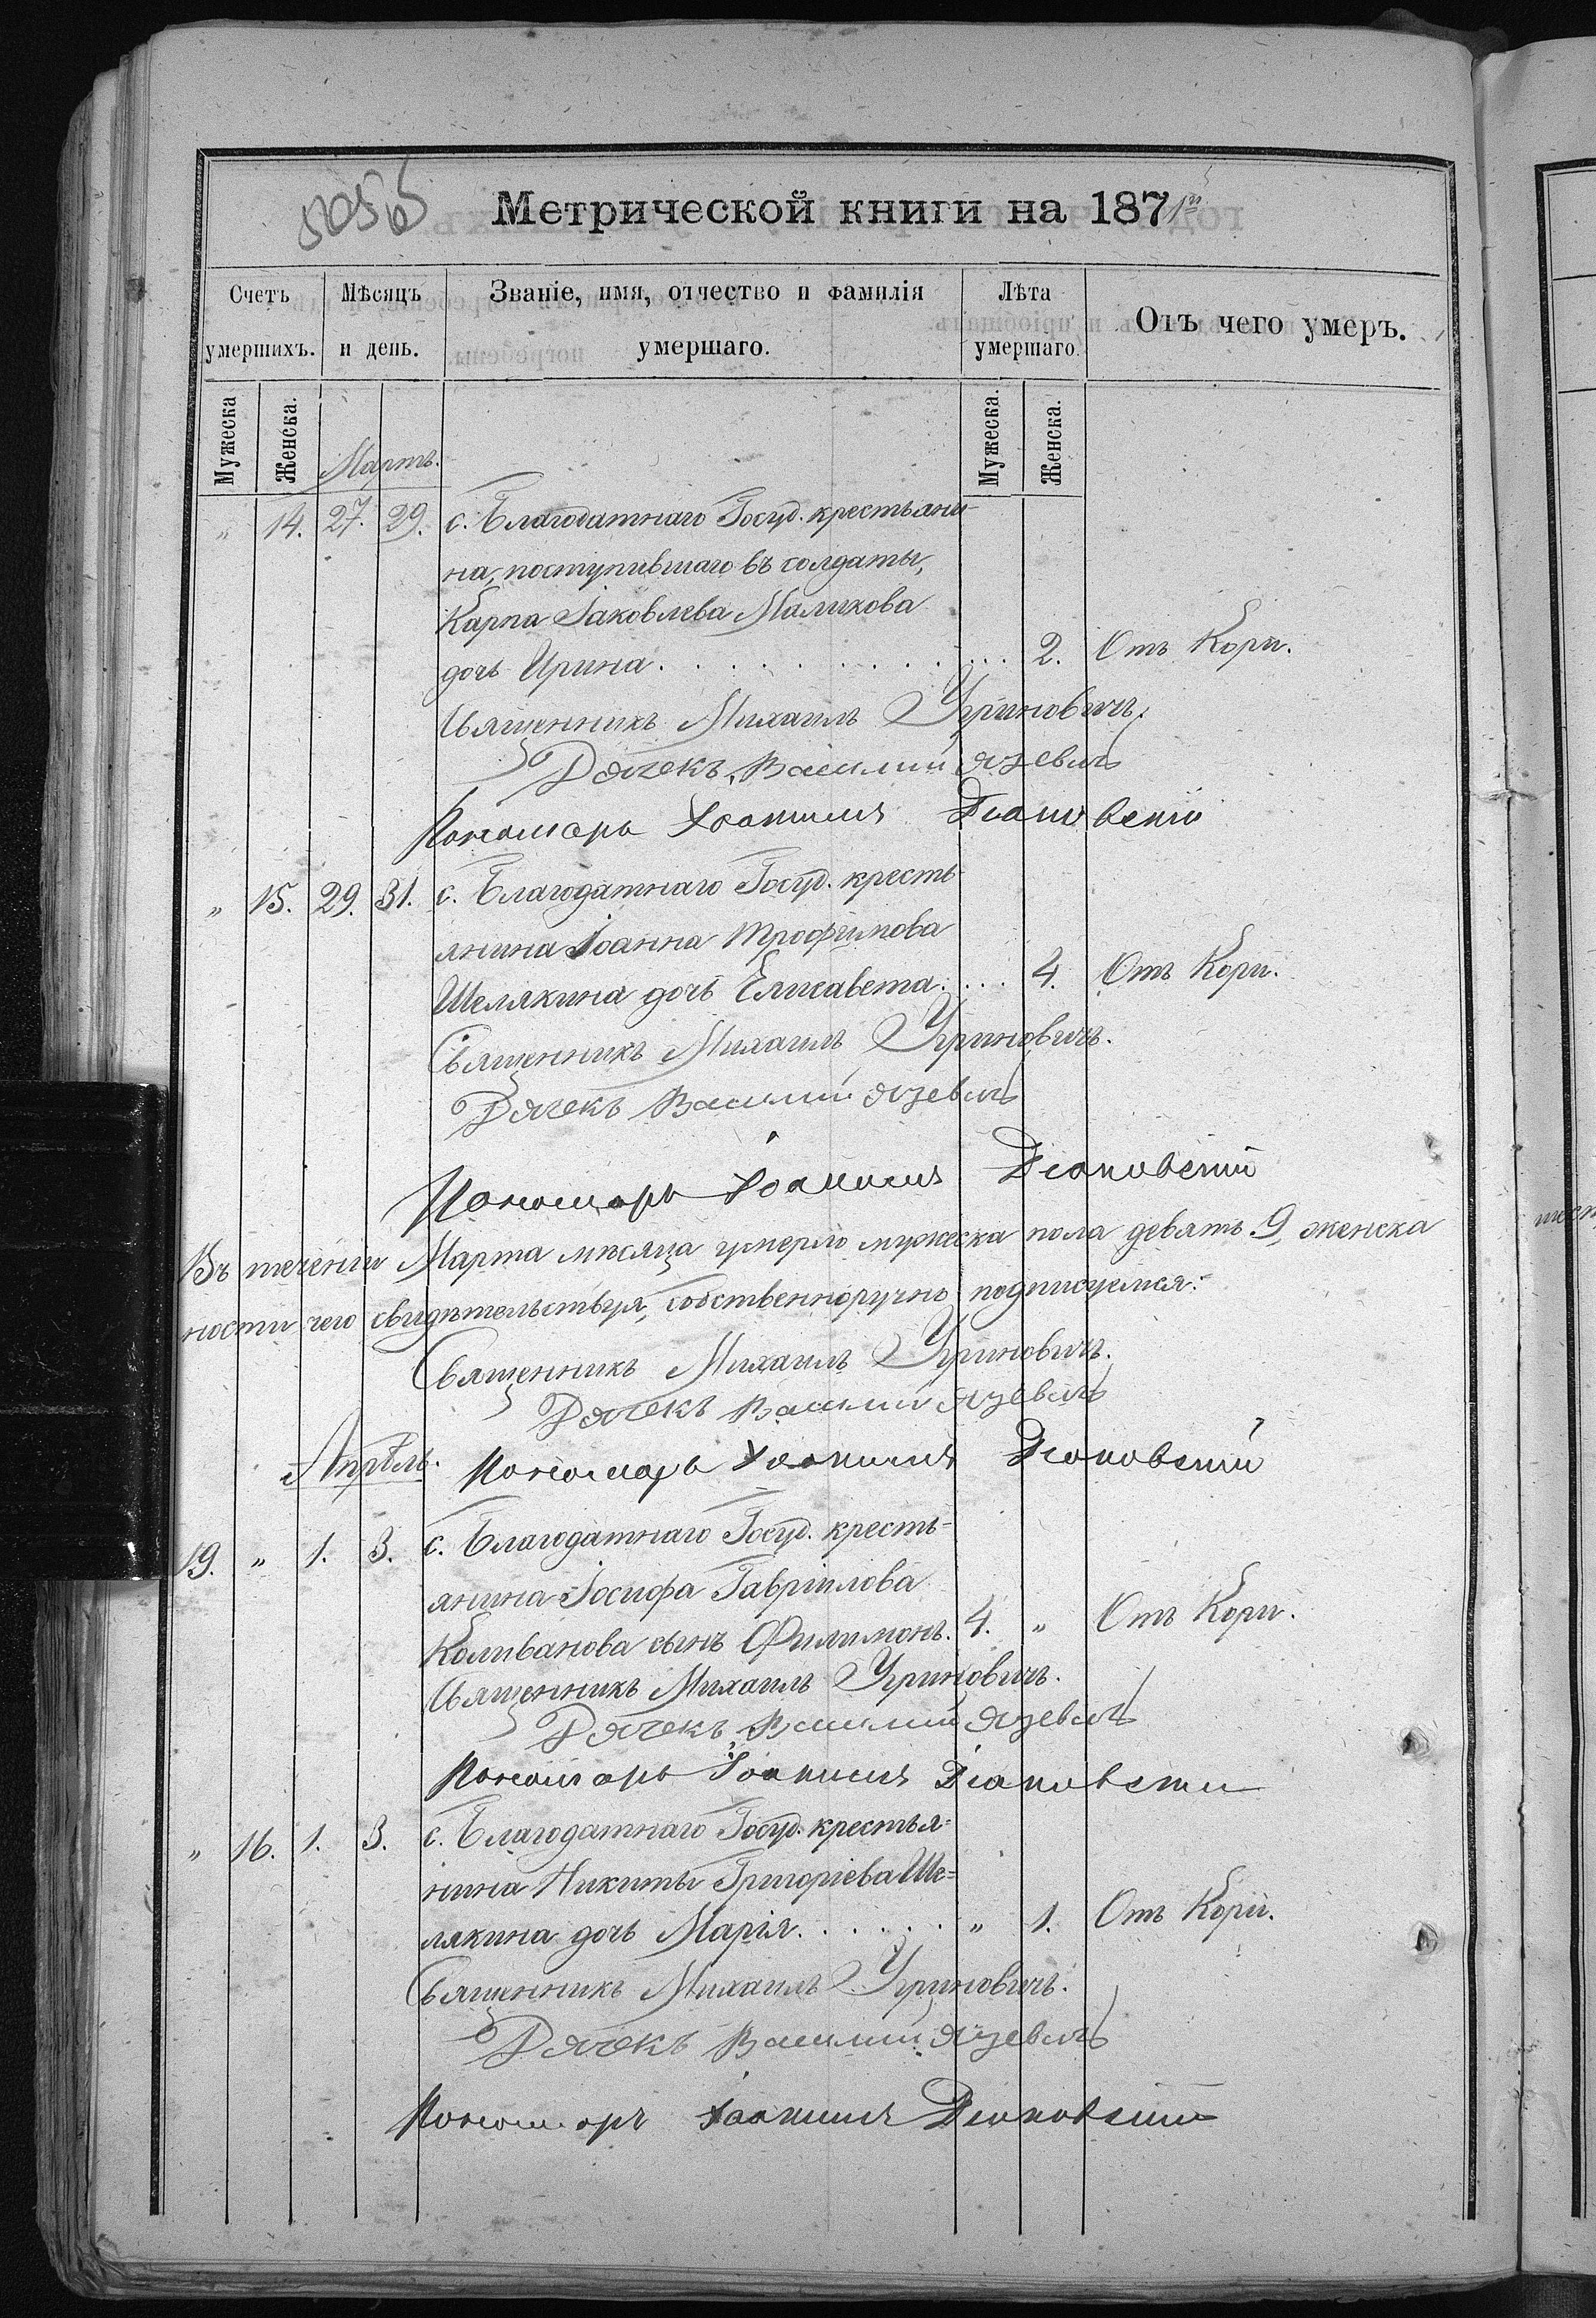 5056
Метрической книги на 1871й
Счетъ умершихъ.
Мѣсяцъ и день.
Званіе, имя, отчество и фамилія умершаго.
Лѣта умершаго.
Отъ чего умеръ.
Мужеска
Женска.
Мужеска.
Женска.
Мартъ.
" 14. 27. 29. с. Благодатнаго Госуд. крестьяни-
на, поступившаго въ солдаты,
Карпа Іаковлева Маликова
дочь Ирина. . . . . . . . . . . . 2. Отъ Кори.
Священникъ Михаилъ Угриновичъ.
Дячекъ Василий Язевичъ
Пономарь Іоакимъ
" 15. 29. 31. с. Благодатнаго Госуд. кресть-
янина Іоанна Трофимова
Шелякина дочь Елисавета. . . . 4. Отъ Кори.
Священникъ Михаилъ Угриновичъ.
Дячекъ Василий Язевичъ
Пономарь Іоакимъ
Въ теченіи Марта мѣсяца умерло мужеска пола девять 9, женска
ности чего свидѣтельствуя, собственноручно подписуемся:
Священникъ Михаилъ Угриновичъ.
Дячекъ Василий Язевичъ
Апрѣль.
Пономарь Іоакимъ
19. " 1. 3. с. Благодатнаго Госуд. кресть-
янина Іосифа Гавріилова
Коливанова сынъ Филимонъ. 4. " Отъ Кори.
Священникъ Михаилъ Угриновичъ.
Дячекъ Василий Язевичъ
Пономарь Іоакимъ
" 16. 1. 3. с. Благодатнаго Госуд. крестья-
нина Никиты Григоріева Ше-
лякина дочь Марія. . . . . . " 1. Отъ Кори.
Священникъ Михаилъ Угриновичъ.
Дячекъ Василий Язевичъ
Пономарь Іоакимъ